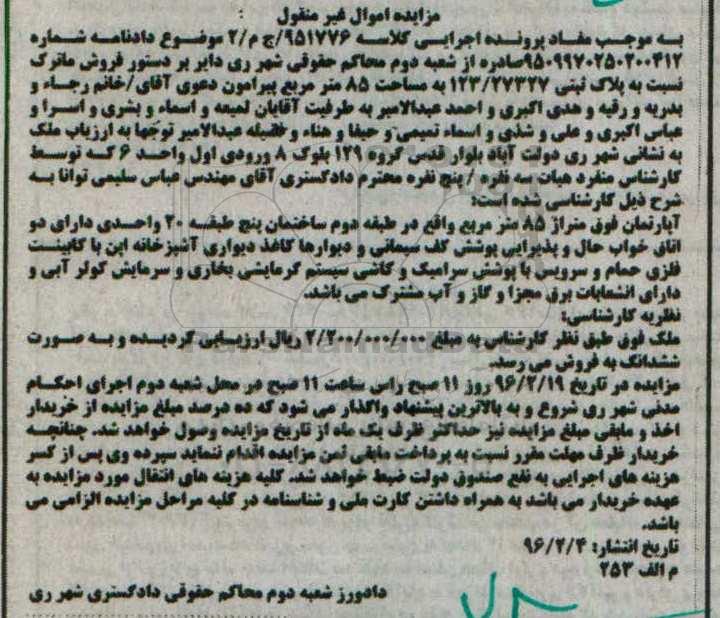 مزایده اموال غیر منقول
به موجب مفاد پرونده اجرایی کلاسه ۹۵۱۷۷۶/ج م/۲ موضوع دادنامه شماره
۹۵۰۹۹۷۰۲۵۰۲۰۰۴۱۲صادره از شعبه دوم محاکم حقوقی شهر ری دایر بر دستور فروش ماترک
نسبت به پلاک ثبتی ۱۲۳/۲۷۳۲۷ به مساحت ۸۵ متر مربع پیرامون دعوی آقای/خانم رجاء و
بدریه و رقیه و هدی اکبری و احمد عبدالامیر به طرفیت آقایان لمیعه و اسماء و بشری و اسرا و
عباس اکبری و علی و شذی و اسماء تمیمی و حیفا و هناء و عبدالامیر توجها به ارزیاب ملک
به نشانی شهر ری دولت آباد بلوار قدس گروه ۱۲۹ بلوک ۸ ورودی اول واحد ۶ که توسط
کارشناس منفرد هیات سه نفره / پنج نفره محترم دادگستری آقای مهندس عباس سلیمی توانا به
شرح ذیل کارشناسی شده است:
آپارتمان فوق متراژ ۸۵ متر مربع واقع در طبقه دوم ساختمان پنج طبقه ۲۰ واحدی دارای دو
اتاق خواب حال و پذیرایی پوشش کف سیمانی و دیوارها کاغذ دیواری آشپزخانه اپن با کابینت
فلزی حمام و سرویس با پوشش سرامیک و کاشی سیستم گرمایشی بخاری و سرمایش کولر آبی و
دارای انشعابات برق مجزا و گاز و آب مشترک می باشد.
نظریه کارشناسی:
ملک فوق طبق نظر کارشناس به مبلغ ۲/۲۰۰/۰۰۰/۰۰۰ ریال ارزیابی گردیده و به صورت
ششدانگ به فروش می رسد.
مزایده در تاریخ ۹۶/۲/۱۹ روز ۱۱ صبح راس ساعت ۱۱ صبح در محل شعبه دوم اجرای احکام
مدنی شهر ری شروع و به بالاترین پیشنهاد واگذار می شود که ده درصد مبلغ مزایده از خریدار
اخذ و مابقی مبلغ مزایده نیز حداکثر ظرف یک ماه از تاریخ مزایده وصول خواهد شد. چنانچه
خریدار ظرف مهلت مقرر نسبت به پرداخت مابقی ثمن مزایده اقدام ننماید سپرده وی پس از کسر
هزینه های اجرایی به نفع صندوق دولت ضبط خواهد شد. کلیه هزینه های انتقال مورد مزایده به
عهده خریدار می باشد به همراه داشتن کارت ملی و شناسنامه در کلیه مراحل مزایده الزامی می
باشد.
تاریخ انتشار: ۹۶/۲/۴
م الف ۲۵۳
دادورز شعبه دوم محاکم حقوقی دادگستری شهر ری